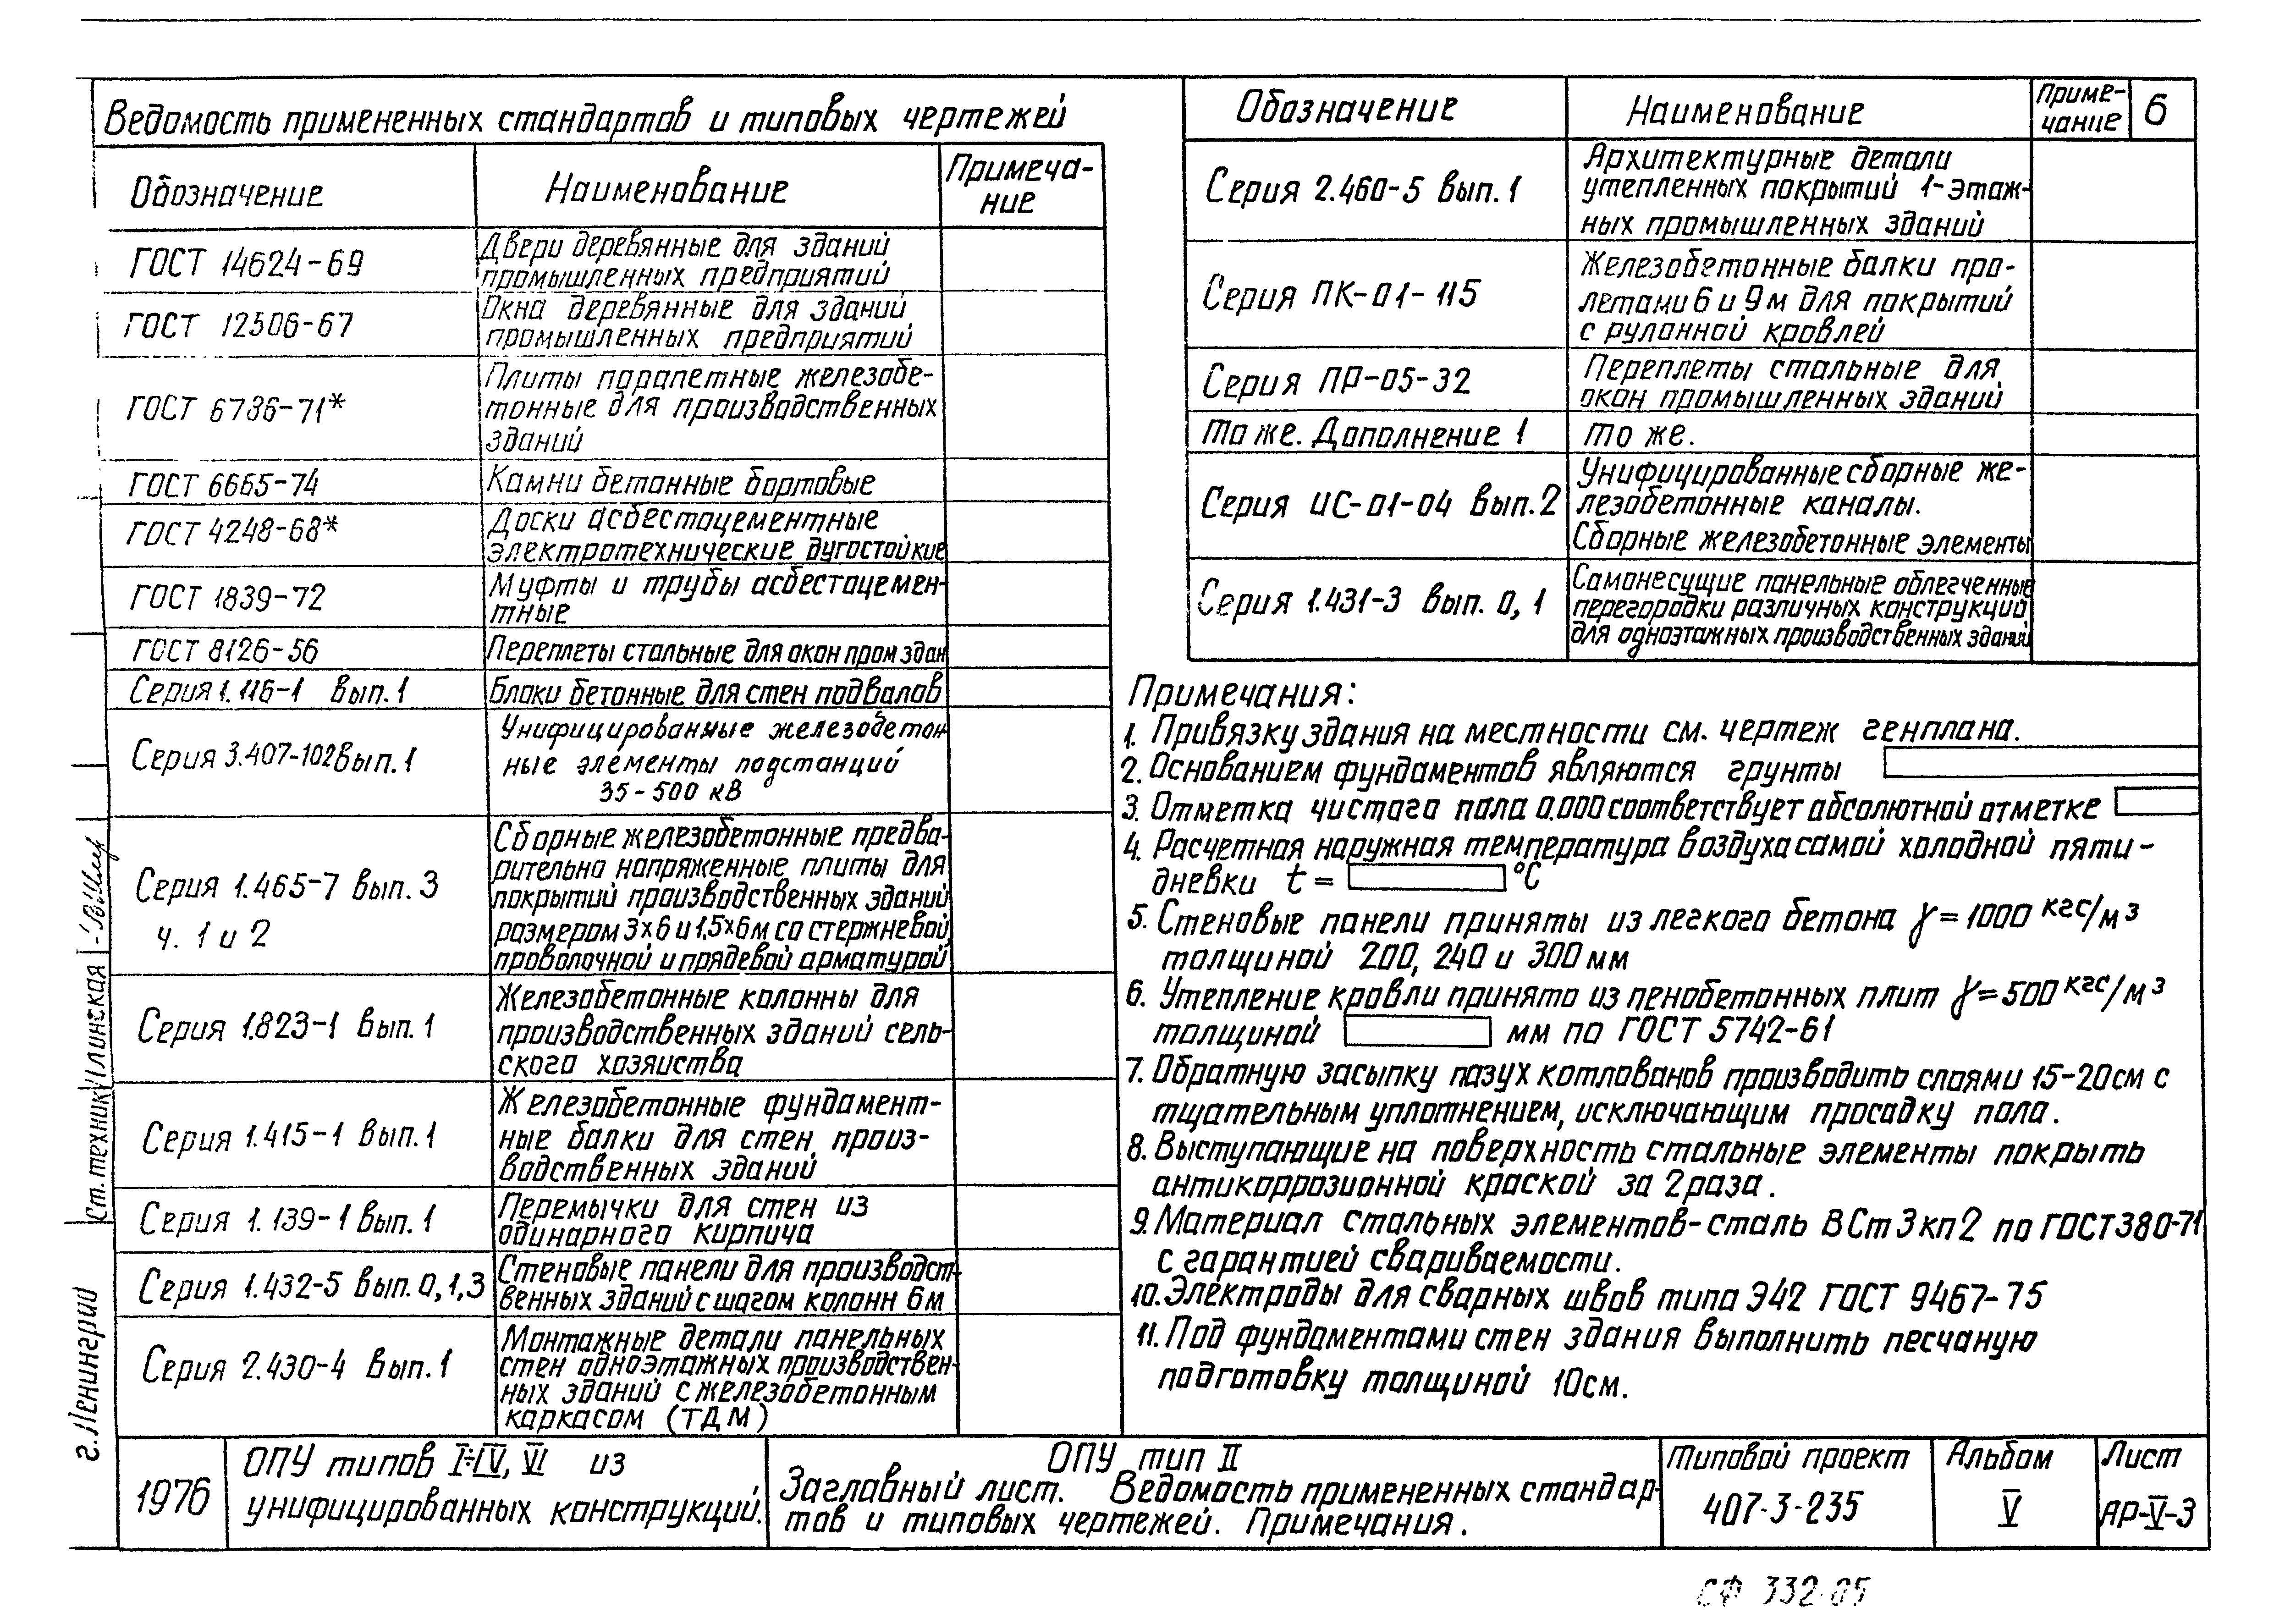 Ведомость примененных стандартов и типовых чертежей
Обозначение
Наименование
Примеча-
ние
ГОСТ 14624-69
Двери деревянные для зданий
промышленных предприятий
ГОСТ 12506-67
Окна деревянные для зданий
промышленных предприятий
ГОСТ 6786-71*
Плиты парапетные железобе-
тонные для производственных
зданий
ГОСТ 6665-74
Камни бетонные бортовые
ГОСТ 4248-68*
Доски асбестоцементные
электротехнические дугостойкие
ГОСТ 1839-72
Муфты и трубы асбестоцемен-
тные
ГОСТ 8126-56
Переплеты стальные для окон пром здан
Серия 1.116-1 вып.1
Блоки бетонные для стен подвалов
Серия 3.407-102 вып.1
Унифицированные железобетон
ные элементы подстанций
35-500 кВ
Серия 1.465-7 вып. 3
ч. 1 и 2
Сборные железобетонные предва-
рительно напряженные плиты для
покрытий производственных зданий
размером 3x6 и 1,5x6м со стержневой,
проволочной и прядевой арматурой
Серия 1.823-1 вып.1
Железобетонные колонны для
производственных зданий сель-
ского хозяиства
Серия 1.415-1 вып.1
Железобетонные фундамент-
ные балки для стен произ-
водственных зданий
Серия 1.139-1 вып.1
Перемычки для стен из
одинарного кирпича
Серия 1.432-5 вып.0,1,3
Стеновые панели для производст-
венных зданий с шагом колонн 6м
Серия 2.430-4 вып.1
Монтажные детали панельных
стен одноэтажных производствен-
ных зданий с железобетонным
каркасом (ТДМ)
Обозначение
Наименование
Приме-
чание
6
Серия 2.460-5 вып.1
Архитектурные детали
утепленных покрытий 1-этаж-
ных промышленных зданий
Серия ПК-01-115
Железобетонные балки про-
летами 6 и 9м для покрытий
с рулонной кровлей
Серия ПР-05-32
Переплеты стальные для
окон промышленных зданий
То же. Дополнение 1
То же.
Серия ИС-01-04 вып.2
Унифицированные сборные же-
лезобетонные каналы.
Сборные железобетонные элементы
Серия 1.431-3 вып. 0,1
Самонесущие панельные облегченные
перегородки различных конструкций
для одноэтажных производственных зданий
Примечания:
1. Привязку здания на местности см. чертеж генплана.
2. Основанием фундаментов являются грунты
3. Отметка чистого пола 0.000 соответствует абсолютной отметке
4. Расчетная наружная температура воздуха самой холодной пяти-
дневки t = °С
5. Стеновые панели приняты из легкого бетона γ=1000 кгс/м3
толщиной 200, 240 и 300 мм
6. Утепление кровли принято из пенобетонных плит γ=500 кгс/м3
толщиной мм по ГОСТ 5742-61
7. Обратную засыпку пазух котлованов производить слоями 15-20см с
тщательным уплотнением, исключающим просадку пола.
8. Выступающие на поверхность стальные элементы покрыть
антикоррозионной краской за 2 раза.
9. Материал стальных элементов-сталь ВСт3кп2 по ГОСТ 380-71
с гарантией свариваемости.
10. Электроды для сварных швов типа Э42 ГОСТ 9467-75
11. Под фундаментами стен здания выполнить песчаную
подготовку толщиной 10см.
Ст. техник Илинская
г. Ленинград
1976
ОПУ типов I÷IV, VI из
унифицированных конструкций.
ОПУ тип II
Заглавный лист. Ведомость примененных стандар-
тов и типовых чертежей. Примечания.
Типовой проект
407-3-235
Альбом
V
Лист
АР-V-3
СФ 332-05